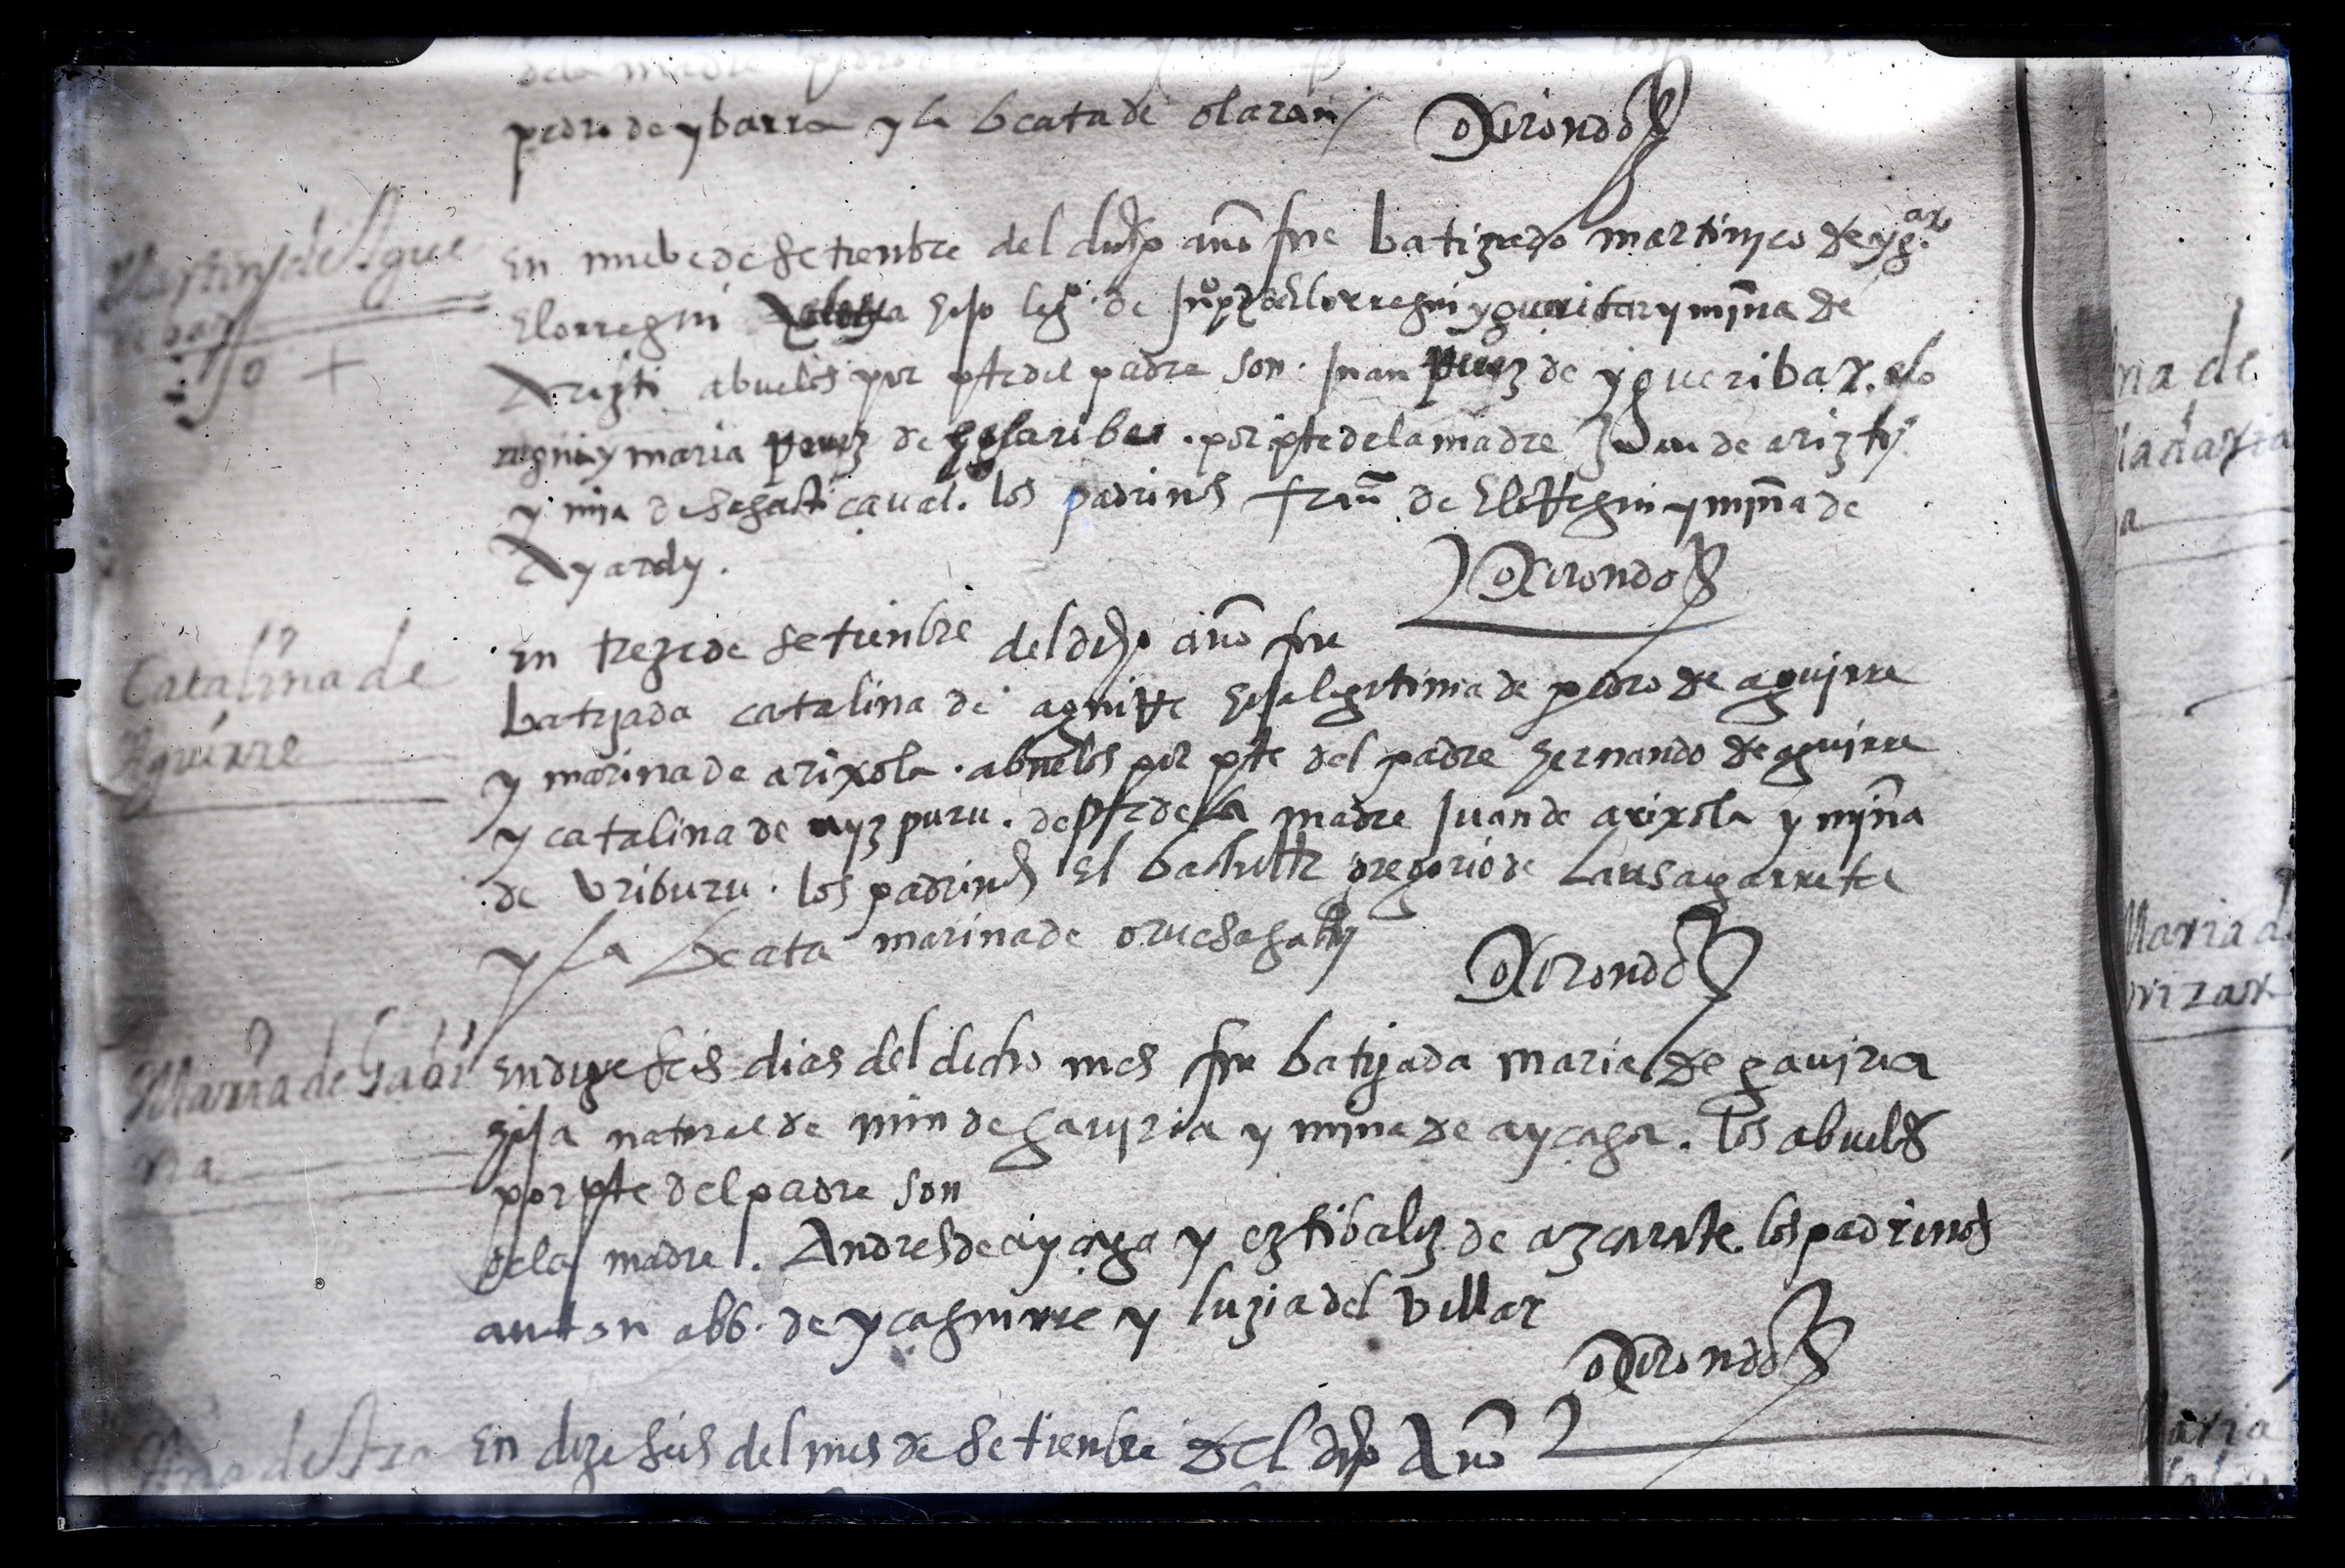 dela madre pedro
pedro de ybarra y la beata de olaran
oxirondo
Martin de Ygue
En nuebe de setienbre del dicho año fue batizado martinico de yg.ar
Elorregui hijo leg.º de Ju.º pz de Elorregui ygueribar y mjna de
Arizti abuelos por pte del padre son. Juan perez de ygueribar. elo
rregui y maria perez de . por pte de la madre Juan de arizti
y mja de caual. los padrinos fran de Elorregui y mjna de
Ayardy.
oxirondo
En treze de setienbre del dicho año fue
Catalina de
Aguirre
batizada catalina de aguirre hija legitima de pedro de aguirre
y marina de arixola. abuelos por pte del padre hernando de aguirre
y catalina de ayzpuru. de pte de la madre Juan de arixola y mjna
de Uriburu. los padrinos El bachiller gregorio de Lausagarreta
y la beata marina de
oxirondo
Maria de Gabi
ria
En dize seis dias del dicho mes fue batizada maria de gauiria
hija natural de mjn de gauiria y mjna de aycaga. los abuelos
por pte del padre son
de la madre. Andres de aycaga y eztibaliz de azcarate. los padrinos
anton abb. de ycaguirre y luzia del Villar
oxirondo
En dize seis del mes de setienbre del dicho Año
na de
Maria d
Maria